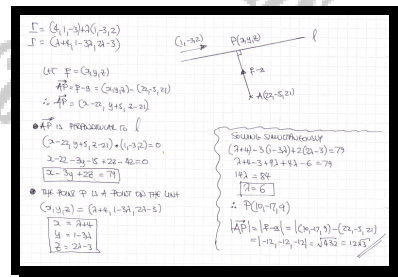 r = (4,1,-3)+λ(1,-3,2)
r = (λ+4, 1-3λ, 2λ-3)
(1,-3,2)
P(x,y,z)
l
LET p = (x,y,z)
AP = p-a = (x,y,z) - (22,-5,21)
∴ AP = (x-22, y+5, z-21)
p-a
A(22,-5,21)
• AP IS PERPENDICULAR TO l
(x-22, y+5, z-21)•(1,-3,2)=0
x-22-3y-15+2z-42=0
x-3y+2z = 79
• THE POINT P IS A POINT ON THE LINE
(x,y,z) = (λ+4, 1-3λ, 2λ-3)
x = λ+4
y = 1-3λ
z = 2λ-3
SOLVING SIMULTANEOUSLY
(λ+4)-3(1-3λ)+2(2λ-3)=79
λ+4-3+9λ+4λ-6=79
14λ = 84
λ=6
∴ P(10,-17,9)
|AP| = |p-a| = |(10,-17,9)-(22,-5,21)|
= |-12,-12,-12| = √432 = 12√3